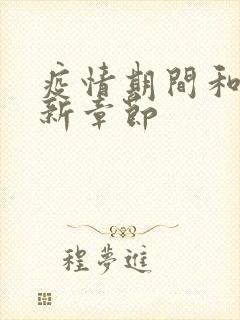 疫情期間和
新章節
程夢進